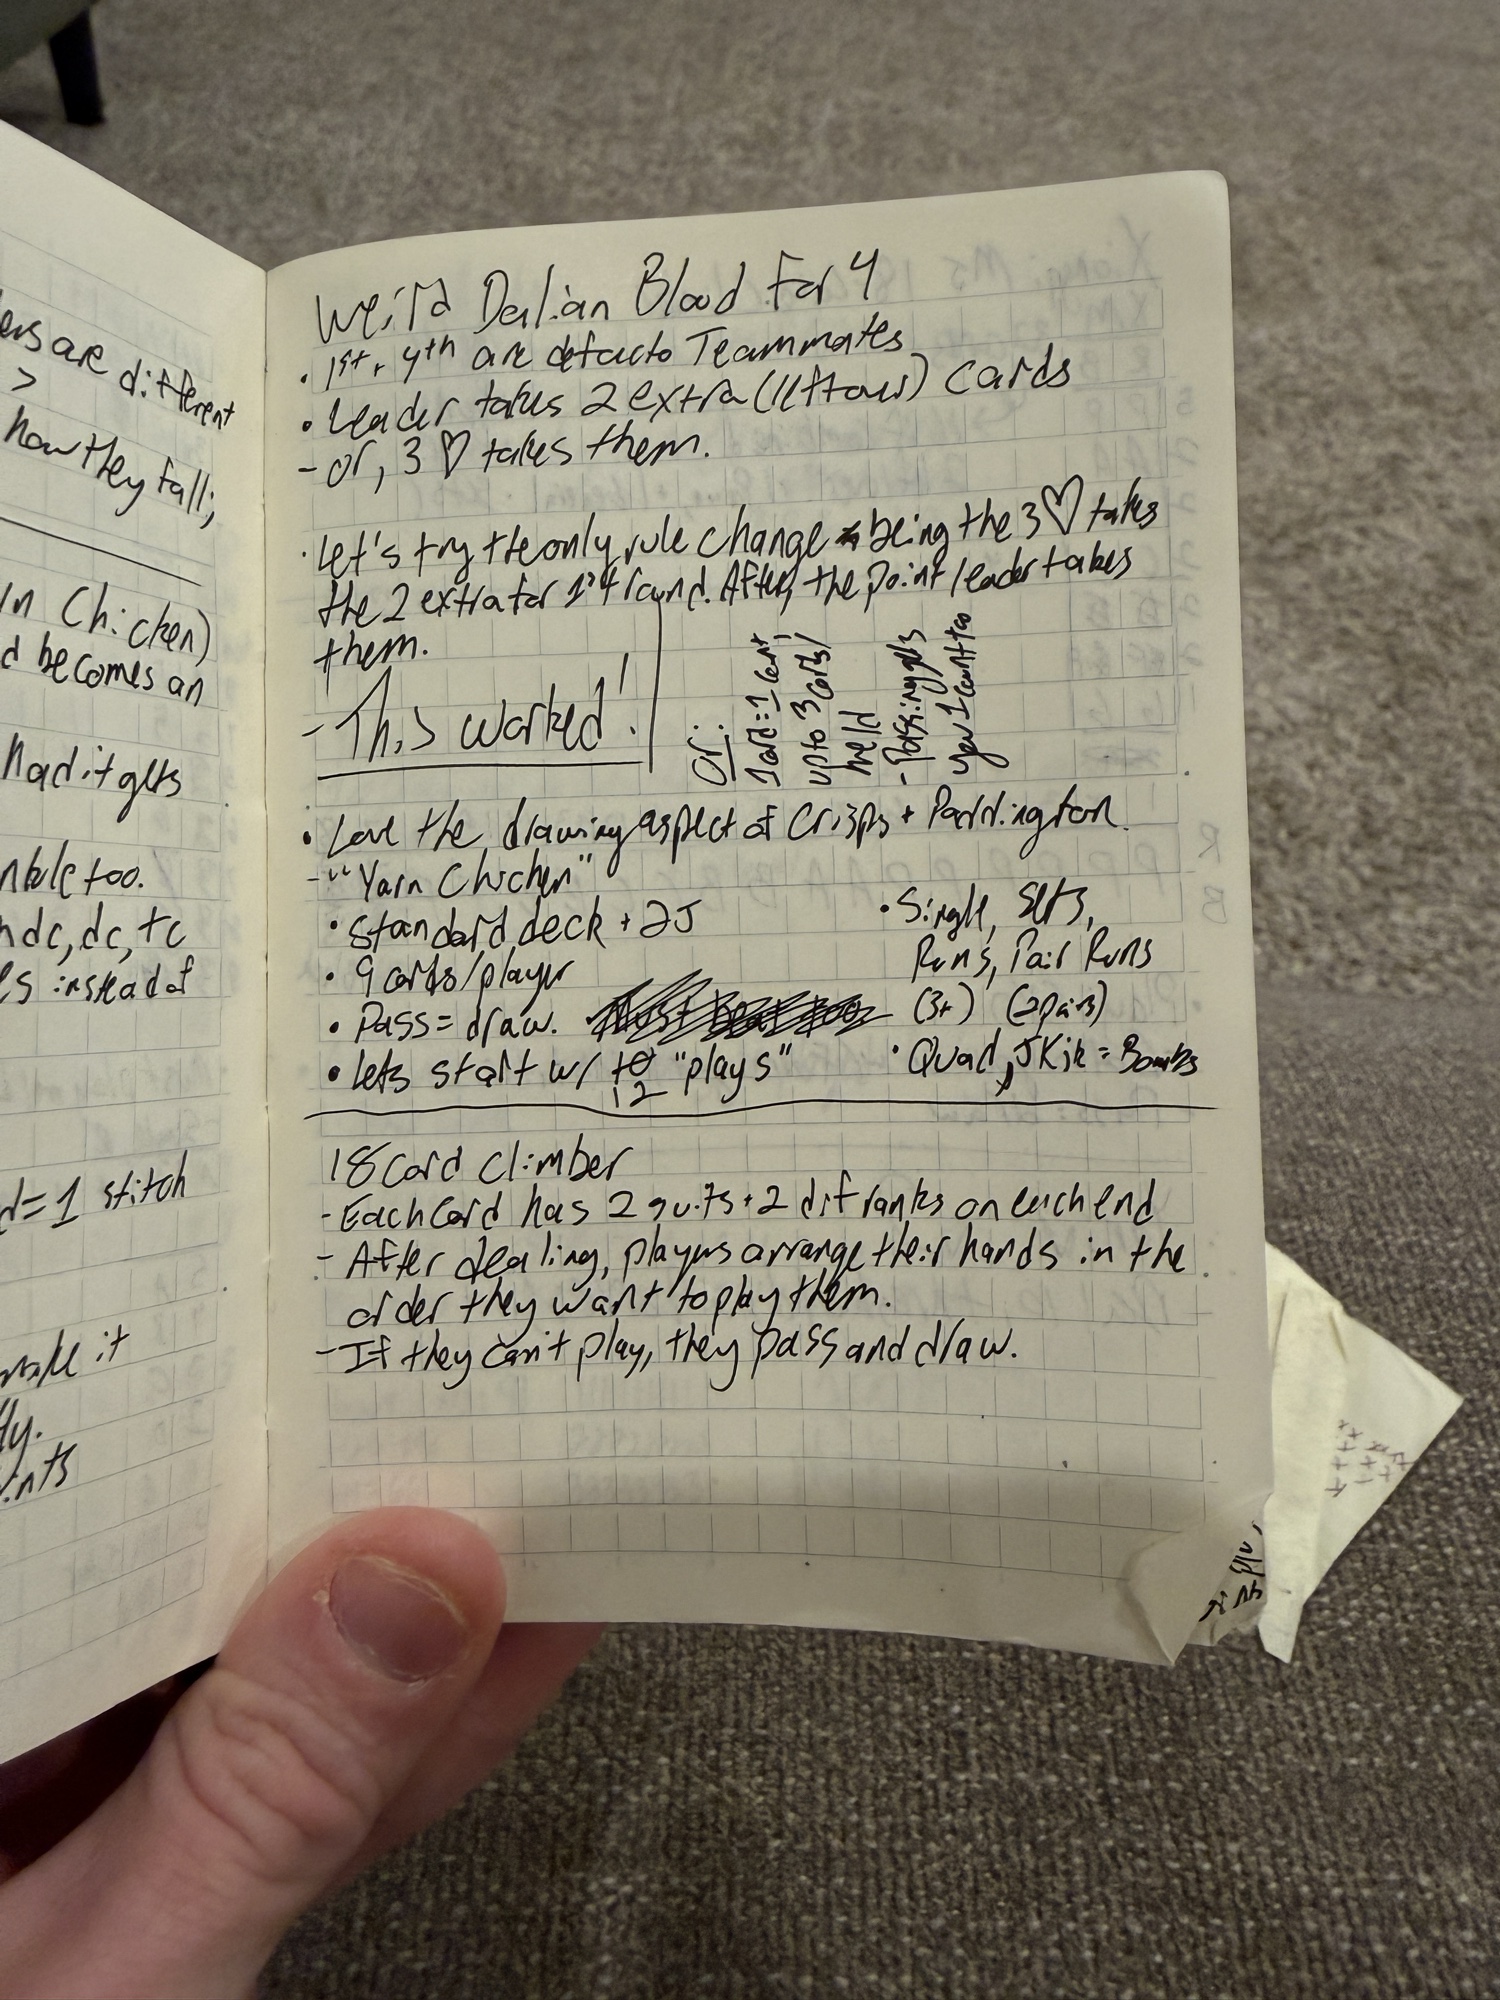 ers are different
>
how they fall;
in Chicken)
d becomes an
had it gets
too.
dc, tc
instead of
d=1 stitch
make it
ly.
ints
Weird Dalian Blood For 4
• 1st + 4th are defacto Teammates
• Leader takes 2 extra (leftover) cards
- or, 3 ♡ takes them.
• Let's try the only rule change being the 3 ♡ takes
the 2 extra for 1st round. After, the point leader takes
them.
- This worked!
Or:
1 card = 1 count
up to 3 cards/
meld
- Passing gets
you 1 count too
• Love the drawing aspect of Crisps + Paddington.
- "Yarn Chicken"
• Standard deck + 2J
• 9 cards/player
• Pass = draw.
• Lets start w/ 10 "plays"
12
• Single, Sets,
Runs, Pair Runs
(3+) (2pairs)
• Quad, JKjk = Bombs
18 Card Climber
- Each Card has 2 suits + 2 dif ranks on each end
- After dealing, players arrange their hands in the
order they want to play them.
- If they can't play, they pass and draw.